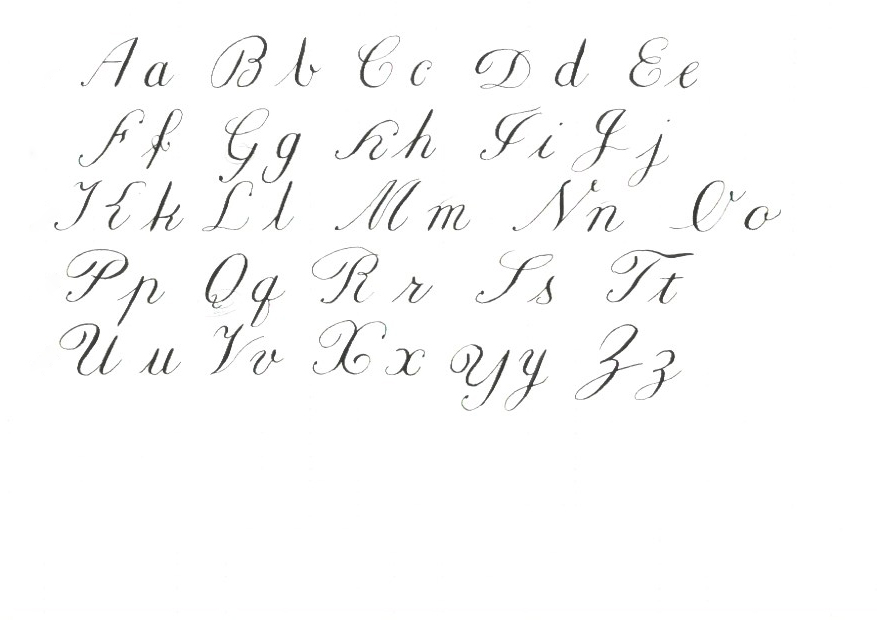 Aa Bb Cc Dd Ee
Ff Gg Hh Ii Jj
Kk Ll Mm Nn Oo
Pp Qq Rr Ss Tt
Uu Vv Xx Yy Zz